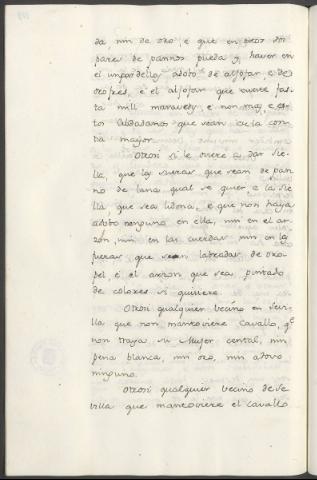 da nin de oro, e que en otros dos
pares de pannos pueda y haver en
el un pardello adobo de aljofar, e de
orofres, e el aljofar que cueste fas-
ta mill maravedis e non mas, e es-
tos cibdadanos que sean de la con-
tia mayor.
Otrosi si le oviere a dar sie-
lla, que las sueras que sean de pan-
no de lana qual se quier, e la sie-
lla, que sea lidona, e que non haya
adobo ninguno en ella, nin en el ar-
zon, nin en las cuerdas nin en las
sueras, que sean labradas de oro-
pel e el arzon que sea pintado
de colores si quisiere.
Otrosi qualquier vecino en Sevi-
lla que non mantoviere Cavallo, q.e
non traya su Muger cendal, nin
pena blanca, nin oro, nin adovo
ninguno.
Otrosi qualquier vecino de Se-
villa que mantoviere el cavallo